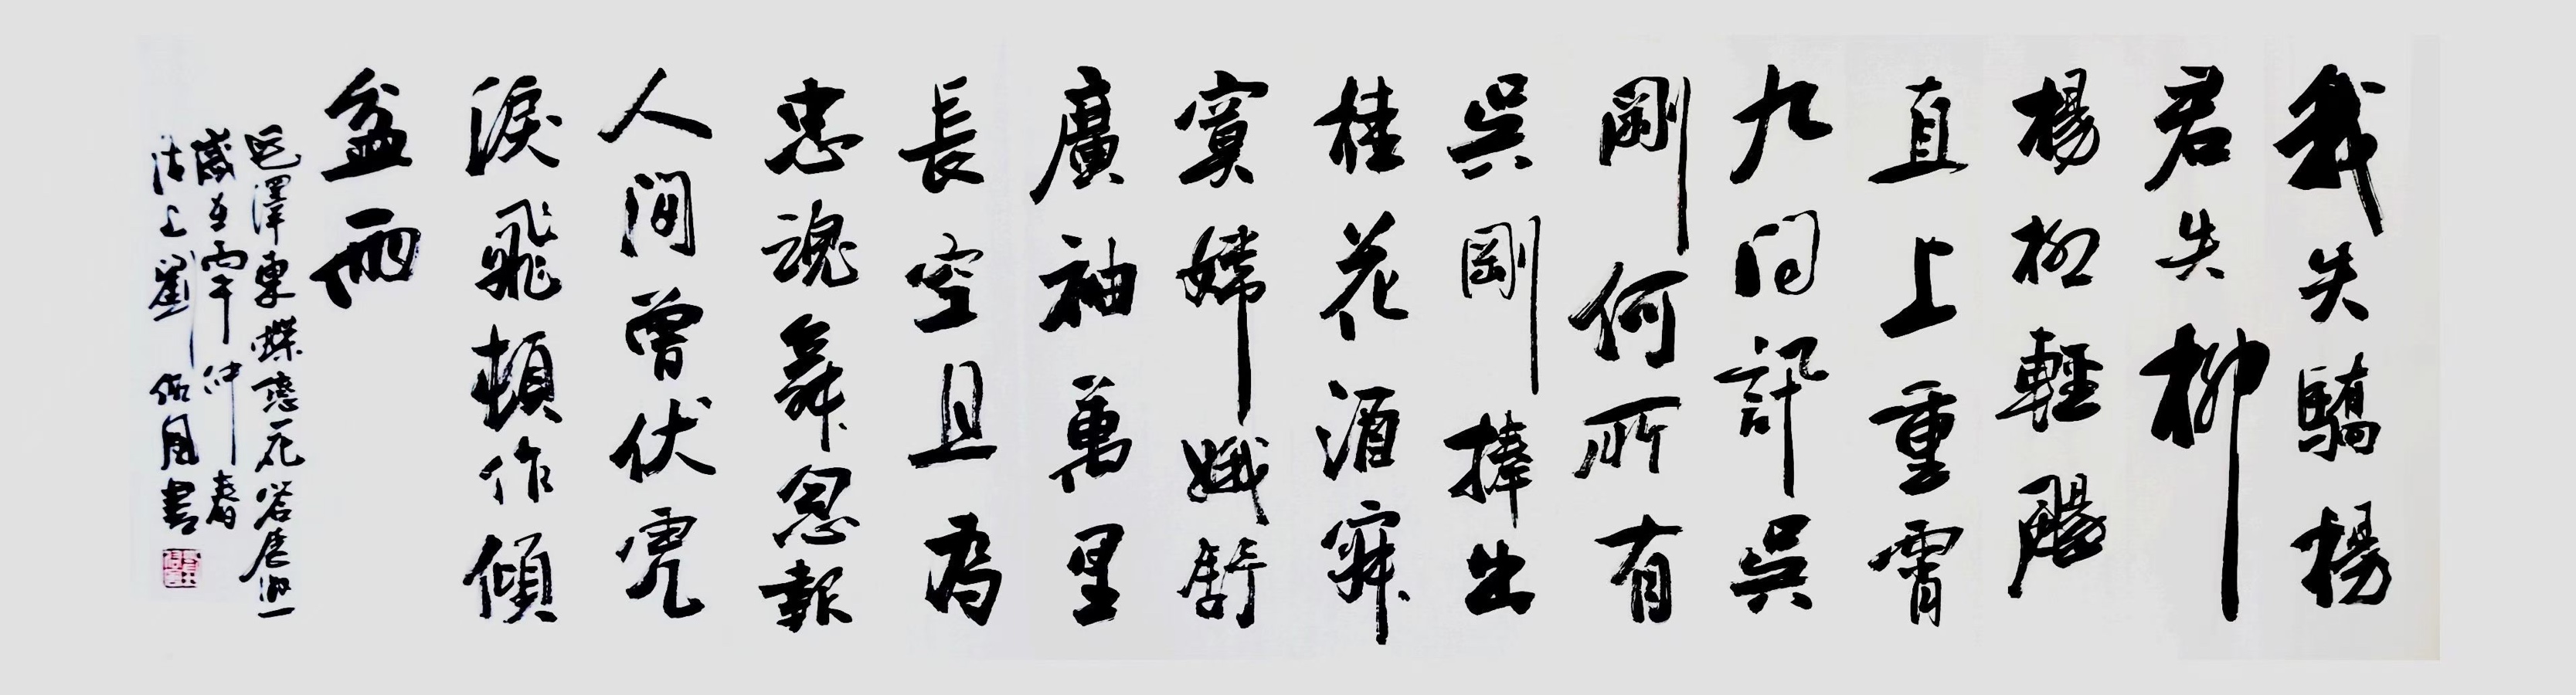 我失驕楊
君失柳
楊柳輕颺
直上重霄
九问訊吳
剛何所有
吳剛捧出
桂花酒寂
寞嫦娥舒
廣袖萬里
長空且為
忠魂舞忽報
人间曾伏虎
淚飛頓作傾
盆雨
毛澤東蝶戀花答李淑一
歲在丙午仲春
沽上劉伯風書